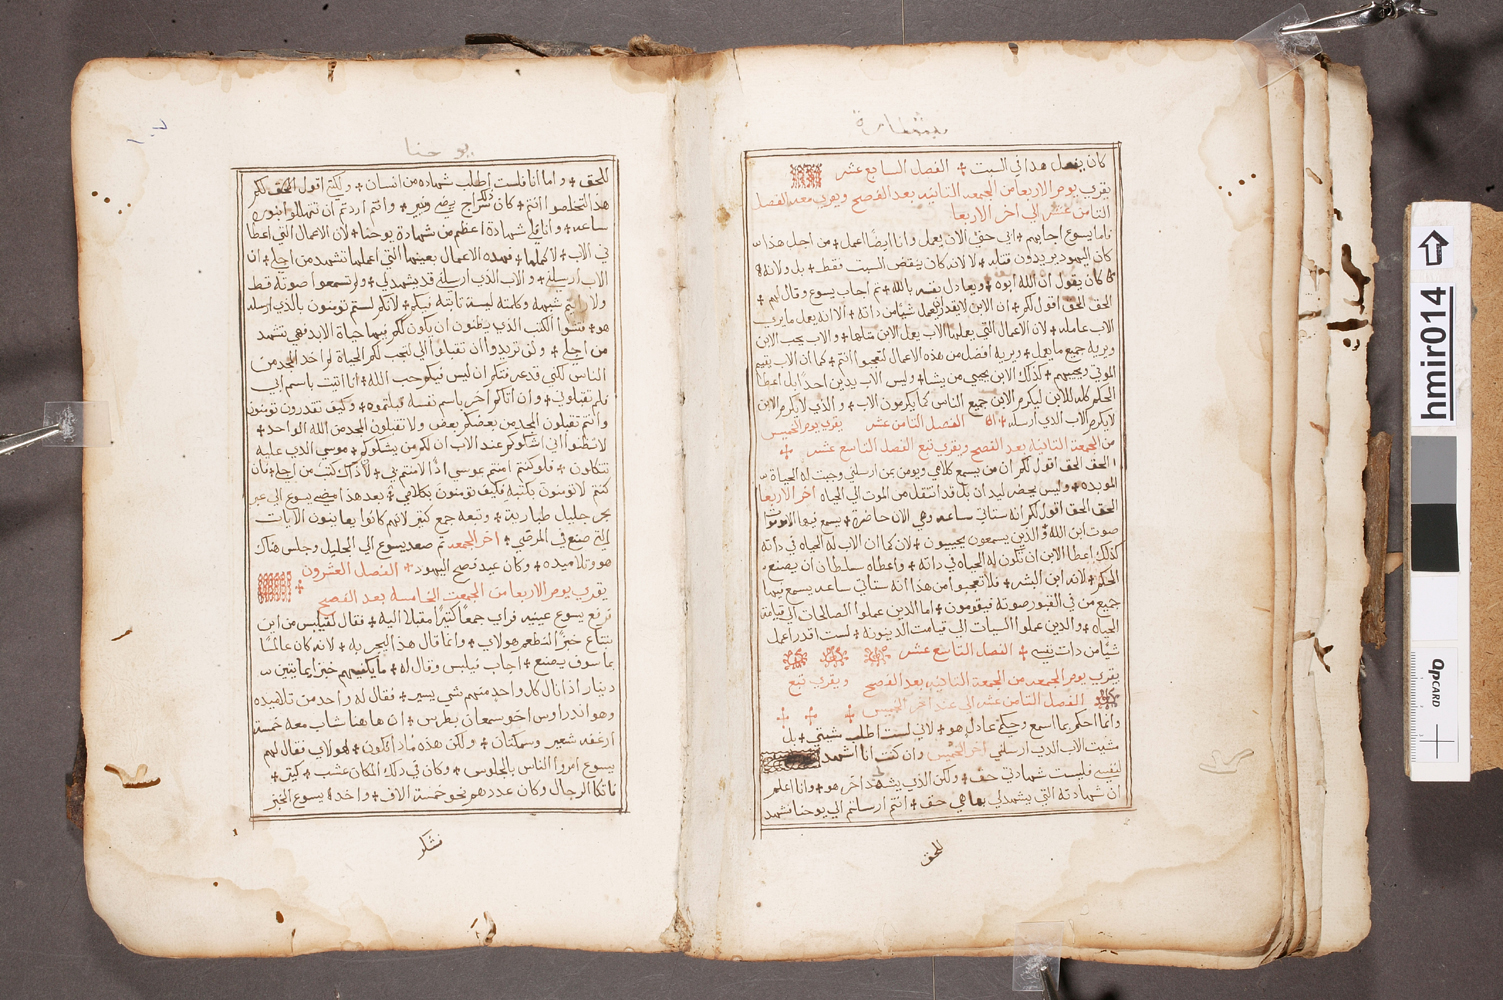 بشارة
كان يفعل هدا في السبت + الفصل السابع عشر
يقري يوم الاربعا من الجمعه التانيه بعد الفصح ويقري معه الفصل
التامن عشر الي اخر الاربعا
فاما يسوع اجابهم + ابي حتي الان يعمل وانا ايضًا اعمل + من اجل هدا
كان اليهود يريدون قتله + لا لانه كان ينقض السبت فقط + بل ولانه
كان يقول ان الله ابوه + ويعادل نفسه بالله + تم اجاب يسوع وقال لهم +
الحق الحق اقول لكم + ان الابن لا يقدر يعمل شيًا من داته + الا انه يعمل ما يري
الاب عامله + لان الاعمال التي يعملها الاب يعمل الابن متلها + والاب يحب الابن
ويريه جميع ما يعمل + ويريه افضل من هذه الاعمال لتعجبوا انتم + كما ان الاب يقيم
الموتي ويحييهم + كدلك الابن يحيي من يشا + وليس الاب يدين احدًا بل اعطا
الحكم كله للابن ليكرم الابن جميع الناس كما يكرمون الاب + والدي لا يكرم الابن
لا يكرم الاب الدي ارسله + الفصل التامن عشر يقري يوم الخميس
من الجمعة التانية بعد الفصح ويقري تبع الفصل التاسع عشر +
الحق الحق اقول لكم ان من يسمع كلامي ويومن بمن ارسلني وجبت له الحياة
الموبده + وليس يحضر ليدان بل قد انتقل من الموت الي الحياه اخر الاربعا
الحق الحق اقول لكم انه ستاتي ساعه وهي الان حاضرة + يسمع فيها الاموات
صوت ابن الله والدين يسمعون يحييون + لان كما ان الاب له الحياه في داته
كدلك اعطا الابن ان تكون له الحياه في داته + واعطاه سلطان ان يصنع
الحكم + لانه ابن البشر + فلا تعجبوا من هدا انه ستاتي ساعه يسمع فيها
جميع من في القبور صوته فيقومون + اما الدين عملوا الصالحات الي قيامة
الحياه + والدين عملوا السيات الي قيامت الدينونه + لست اقدر اعمل
شيًا من دات نفسي + الفصل التاسع عشر
يقري يوم الجمعه من الجمعة التانيه بعد الفصح ويقري تبع
للفصل التامن عشر الي عند اخر الخميس + + +
وانما احكم بما اسمع وحكمي عادل هو + لاني لست اطلب شيتي + بل
مشيت الاب الدي ارسلني اخر الخميس وان كنت انا اشهد
لنفسي فليست شهادتي حق + ولكن الدي يشهد اخر هو + وانا اعلم
ان شهادته التي يشهد لي بها هي حق + انتم ارسلتم الي يوحنا فشهد
للحق
يوحنا
للحق + واما انا فلست اطلب شهاده من انسان + ولكني اقول الحق لكم
هدا لتخلصوا انتم + كان داك سراج يضي وينير + وانتم اردتم ان تتهللوا بنوره
ساعه + وانا لي شهادة اعظم من شهادة يوحنا + لان الاعمال التي اعطا
ني الاب + لاكملها + فهده الاعمال بعينها التي اعملها تشهد من اجلي + ان
الاب ارسلني + والاب الدي ارسلني قد يشهد لي + ولم تسمعوا صوته قط
ولا رايتم شبهه وكلمته ليست تابته فيكم + لانكم لستم تومنون بالدي ارسله
هو + فتشوا الكتب الدي تظنون ان يكون لكم فيها حياة الابد فهي تشهد
من اجلي + ولن تريدوا ان تقبلوا الي لتجب لكم الحياة لواخد المجد من
الناس لكني قد عرفتكم ان ليس فيكم حب الله + انا اتيت باسم ابي
فلم تقبلوني + وان اتاكم اخر باسم نفسه قبلتموه + وكيف تقدرون تومنون
وانتم تقبلون المجد من بعضكم بعض ولا تقبلون المجد من الله الواحد +
لا تظنوا اني اشكوكم عند الاب ان لكم من يشكوكم + موسي الدي عليه
تتكلون + فلو كنتم امنتم بموسي ادًا لامنتم بي + لان داك كتب من اجلي + فان
كنتم لا تومنون بكتبه فكيف تومنون بكلامي + بعد هدا مضي يسوع الي عبر
بحر جليل طباريه + وتبعه جمع كتير لانهم كانوا يعاينون الايات
التي صنع في المرضي + اخر الجمعه تم صعد يسوع الي الجليل وجلس هناك
هو وتلاميده + وكان عيد فصح اليهود + الفصل العشرون
يقري يوم الاربعا من الجمعت الخامسه بعد الفصح +
فرفع يسوع عينيه فراي جمعًا كتيرًا مقبلًا اليه + فقال لفيلبس من اين
نبتاع خبزًا لنطعم هولاي + وانما قال هدا ليجربه + لانه كان عالمًا
بما سوف يصنع + اجاب فيلبس وقال له + ما يكفيهم خبز بمايتين
دينار ادا نال كل واحد منهم شي يسير + فقال له واحد من تلاميده
وهو اندراوس اخو سمعان بطرس + ان هاهنا شاب معه خمسة
ارغفه شعير وسمكتان + ولكن هده مادا تكون + لهولاي فقال لهم
يسوع امروا الناس بالجلوس + وكان في دلك المكان عشب + كتير +
فاتكا الرجال وكان عددهم نحو خمسة الاف + واخد يسوع الخبز
فشكر
hmir014
QPCARD